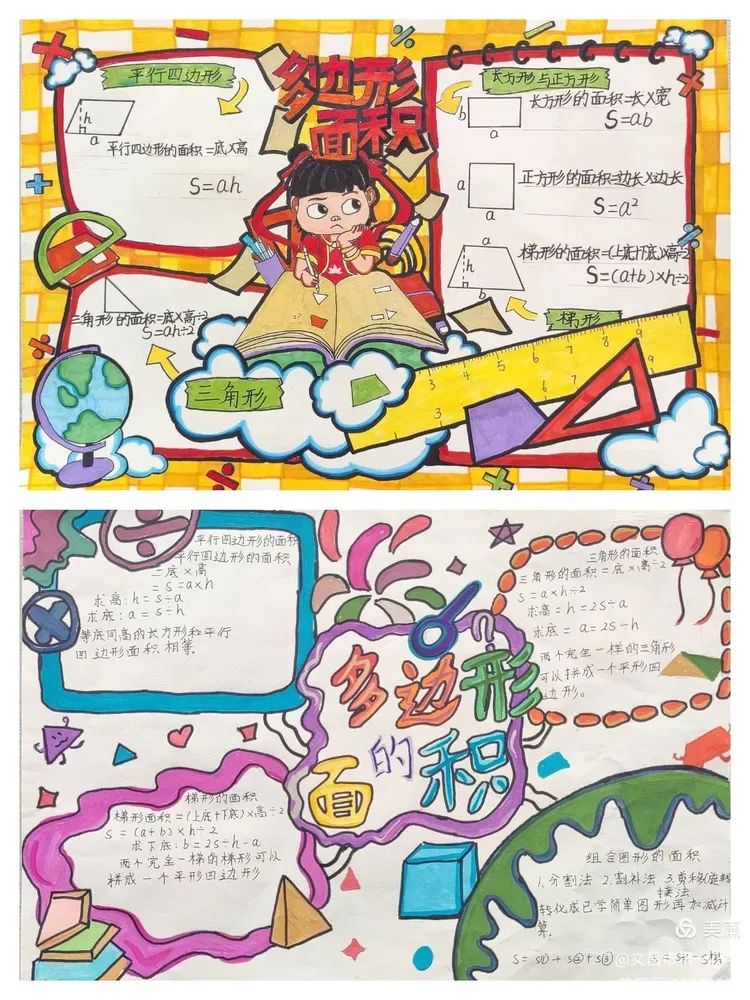 多边形
面积
平行四边形
h
a
平行四边形的面积=底×高
S=ah
长方形与正方形
b
a
长方形的面积=长×宽
S=ab
a
a
正方形的面积=边长×边长
S=a²
a
h
b
梯形的面积=(上底+下底)×高÷2
S=(a+b)×h÷2
梯形
三角形的面积=底×高÷2
S=ah÷2
三角形
平行四边形的面积
平行四边形的面积
=底×高
=S=a×h
求高:h=S÷a
求底:a=S÷h
等底同高的长方形和平行
四边形面积相等。
三角形的面积
三角形的面积=底×高÷2
S=a×h÷2
求高=h=2S÷a
求底=a=2S÷h
两个完全一样的三角形
可以拼成一个平形四
边形。
多边形
的
面积
梯形的面积
梯形面积=(上底+下底)×高÷2
S=(a+b)×h÷2
求下底:b=2S÷h-a
两个完全一样的梯形可以
拼成一个平形四边形
组合图形的面积
1.分割法 2.割补法 3.剪移旋转
接法
转化成已学简单图形再加减计
算。
S=S①+S②+S③
美篇